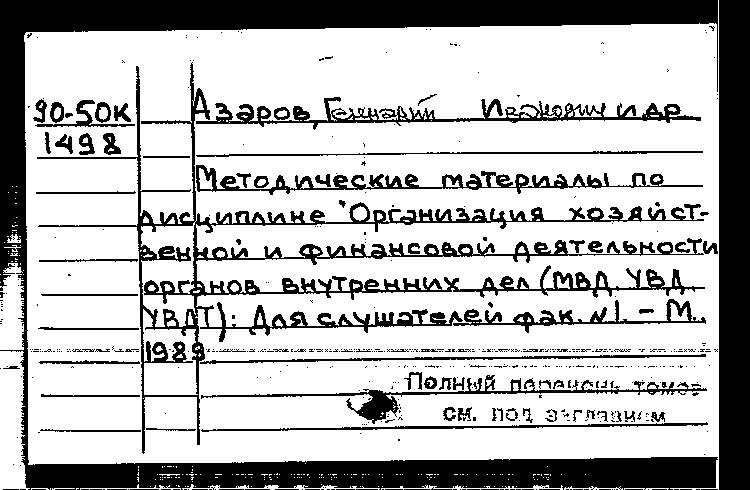 90-50К Азаров, Геннадий Иванович и др.
1498
Методические материалы по
дисциплине "Организация хозяйст-
венной и финансовой деятельности
органов внутренних дел (МВД, УВД,
УВДТ): Для слушателей фак. №1. - М.,
1989
Полный перечень томов
см. под заглавием